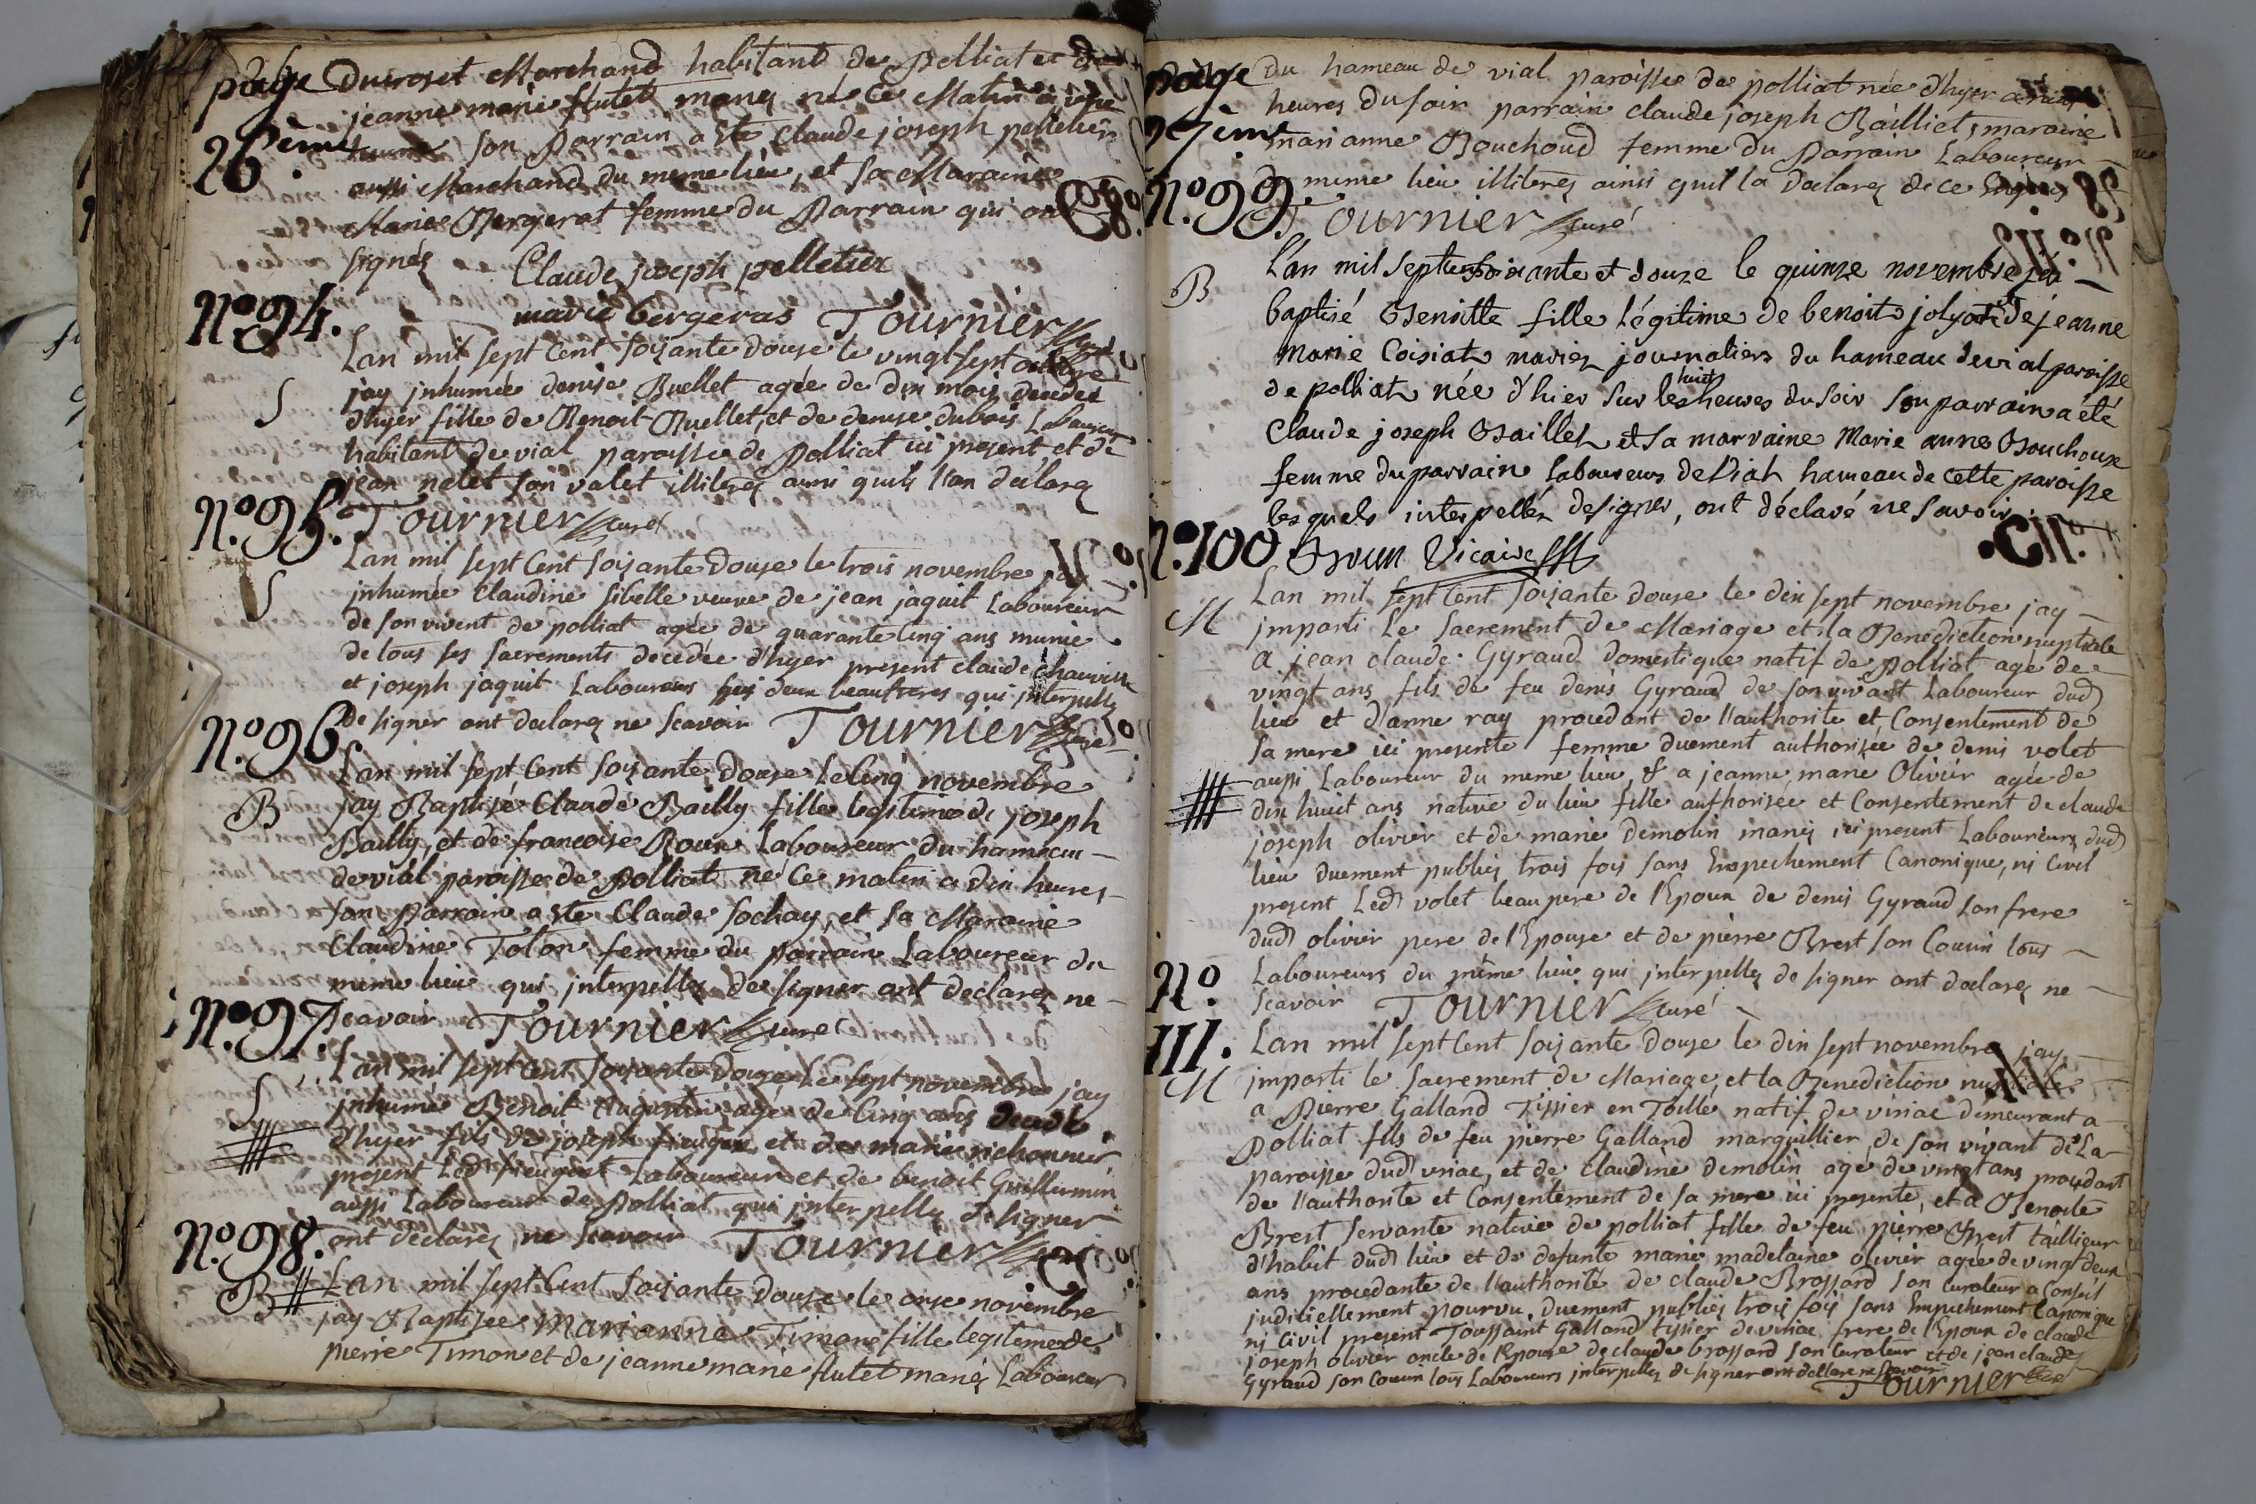 page 26ème.
Ducroset Marchand habitant de Polliat et de
jeanne marie flutet mariez né ce Matin à
son Parrain a ete Claude joseph pelletier
aussi Marchand du meme lieu, et sa Maraine
Marie Bergerat femme du Parrain qui ont
signéz
Claude joseph pelletier
marie bergeras Tournier curé
N.º 94.
S
Lan mil sept Cent soixante douze le vingt sept octobre
jay jnhumée denise Buellet agée de dix mois decedee
dhyer fille de Benoit Buellet, et de denise dubois Laboureur
habitant de vial paroisse de Polliat ici present et de
jean nelet son valet illiterez ainsi quils l'on déclarez
Tournier curé
N.º 95.
S
Lan mil sept Cent soixante douze le trois novembre jay
jnhumée Claudine sibelle veuve de jean jaquit Laboureur
de son vivent de polliat agée de quarante Cinq ans munie
de tous ses sacrements decedée d'hyer present claude chauvin
et joseph jaquit Laboureurs ses deux beaufreres qui jnterpellez
de signer ont declarez ne scavoir Tournier curé
N.º 96
B
Lan mil sept Cent soixante douze le Cinq novembre
jay Baptisé Claude Bailly fille legitime de joseph
Bailly, et de francoise Roux Laboureur du hameau
de vial paroisse de Polliat né ce matin a dix heures
son Parrain a ete Claude sochay, et sa Maraine
Claudine Tolon femme du parrain Laboureur du
meme lieu qui jnterpellez de signer ont declarez ne
scavoir Tournier curé
N.º 97.
S
Lan mil sept Cent soixante douze le sept novembre jay
jnhumé Benoit Augustin agé de Cinq ans decedé
d'hyer fils de joseph et de marie richonnier
present led Laboureur et de benoit Guillermin
aussi Laboureur de Polliat qui jnterpellez de signer
ont declarez ne scavoir Tournier curé
N.º 98.
B
Lan mil sept Cent soixante douze le onze novembre
jay Baptisée marianne Timon fille legitime de
pierre Timon et de jeanne marie flutet mariez Laboureur
page 27ème
du hameau de vial paroisse de polliat née d'hyer a
heures du soir parrain claude joseph Bailliet, maraine
marianne Bouchoud femme du Parrain Laboureur
du meme lieu illiterez ainsi quil la declarez de ce enquis
N.º 99.
Tournier curé
B
L'an mil septcent soixante et douze le quinze novembre j'ai
baptisé Benoitte fille légitime de benoit joly et de jeanne
Marie Coisiat mariez journaliers du hameau de vial paroisse
de polliat née d'hier sur les huit heures du soir son parrain a été
Claude joseph Baillet et sa marraine Marie anne Bouchoux
femme du parrain laboureurs de Vial hameau de cette paroisse
lesquels interpellés de signer, ont déclaré ne savoir.
N.º 100 Brun Vicaire
M
Lan mil sept Cent soixante douze le dix sept novembre jay
jmparti le sacrement de Mariage et la Benediction nuptiale
a jean claude Gyraud domestique natif de Polliat agé de
vingt ans fils de feu denis Gyraud de son vivant Laboureur dud
lieu et d'anne ray procedant de l'authorité et Consentement de
sa mere ici presente femme duement authorisée de denis volet
aussi Laboureur du meme lieu, & a jeanne marie Olivier agée de
dix huict ans native du lieu fille authorisée et Consentement de claude
joseph olivier et de marie demolin mariez ici present Laboureurs dud
lieu duement publiez trois fois sans Empechement Canonique, ni Civil
present Led volet beau pere de l'Epoux de denis Gyraud son frere
dud olivier pere de l'Epouse et de pierre Brest son Cousin tous
Laboureurs du même lieu qui jnterpellez de signer ont declarez ne
scavoir Tournier curé
N.º 111.
M
Lan mil sept Cent soixante douze le dix sept novembre jay
jmparti le sacrement de Mariage, et la Benediction nuptiale
a Pierre Galland Tissier en Toille natif de viriac demeurant a
Polliat fils de feu pierre Galland marguillier de son vivant de La
paroisse dud viriac, et de claudine demolin agé de vingt ans procedant
de l'authorité et Consentement de sa mere ici presente, et a Benoite
Brest servante native de polliat fille de feu pierre Brest taillieur
d'habit dud lieu et de defunte marie madelaine olivier agée de vingt deux
ans procedante de l'authorité de claude Brossard son Curateur a Conseil
juditiellement pourvu, duement publiez trois fois sans Empechement Canonique
ni Civil present Toussaint Galland tissier de viriac frere de l'Epoux de claude
joseph olivier oncle de l'Epouse de claude brossard son Curateur et de jean claude
Gyraud son Cousin tous Laboureurs jnterpellez de signer ont declare ne scavoir
Tournier curé